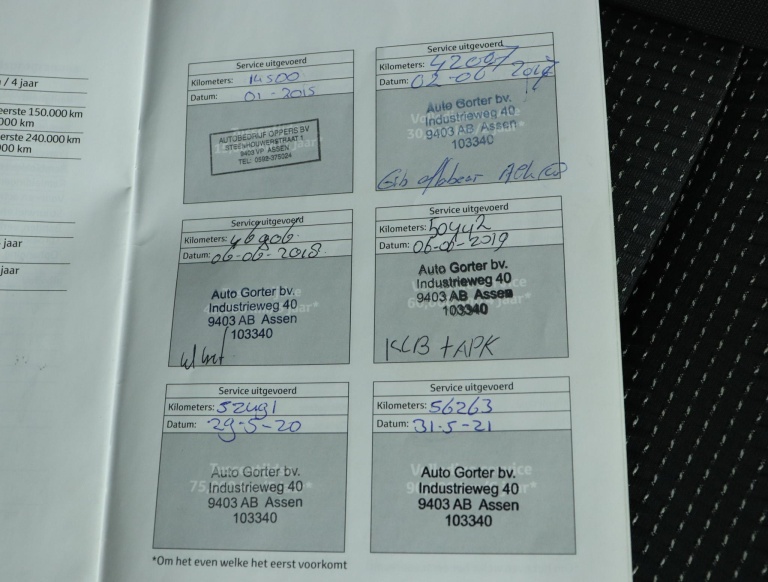 / 4 jaar
eerste 150.000 km
000 km
erste 240.000 km
00 km
jaar
jaar
Service uitgevoerd
Kilometers: 14500
Datum: 01-2015
AUTOBEDRIJF OPPERS BV
STEENHOUWERSTRAAT 1
9403 VP ASSEN
TEL: 0592-375324
Service uitgevoerd
Kilometers: 42097
Datum: 02-06 2017
Auto Gorter bv.
Industrieweg 40
9403 AB Assen
103340
Service uitgevoerd
Kilometers: 46906
Datum: 06-06-2018
Auto Gorter bv.
Industrieweg 40
9403 AB Assen
103340
Service uitgevoerd
Kilometers: 50442
Datum: 06-06-2019
Auto Gorter bv.
Industrieweg 40
9403 AB Assen
103340
KLB + APK
Service uitgevoerd
Kilometers: 52491
Datum: 29-5-20
Auto Gorter bv.
Industrieweg 40
9403 AB Assen
103340
Service uitgevoerd
Kilometers: 56263
Datum: 31-5-21
Auto Gorter bv.
Industrieweg 40
9403 AB Assen
103340
*Om het even welke het eerst voorkomt